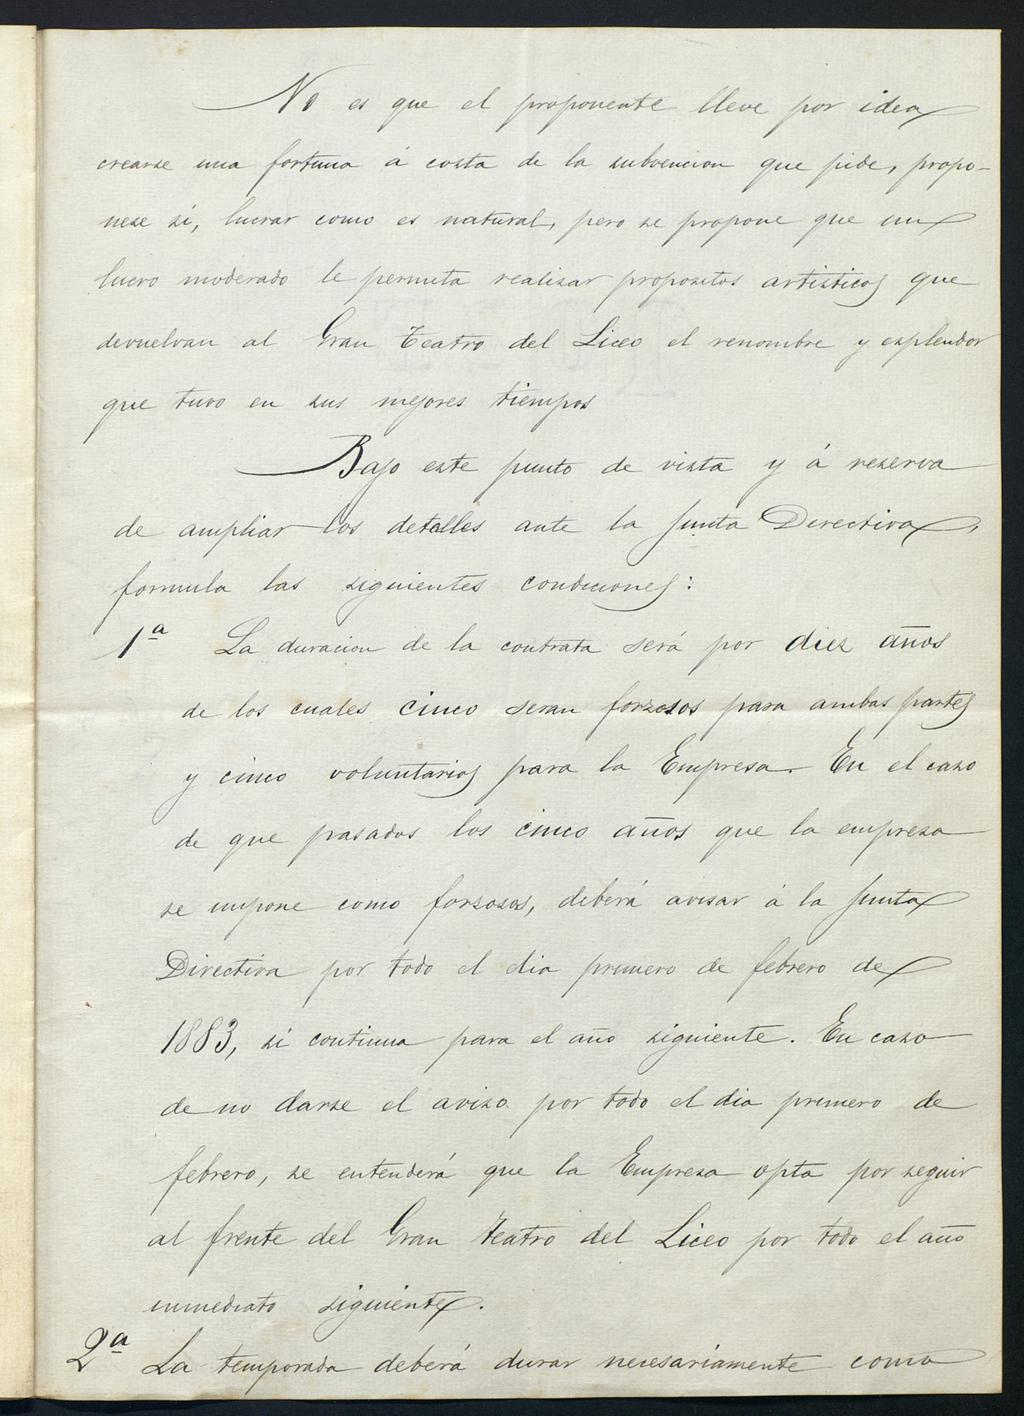 No es que el proponente lleve por idea
crearse una fortuna á costa de la subvencion que pide, propo-
nese si, lucrar como es natural, pero se propone que un
lucro moderado le permita realisar propositos artisticos que
devuelvan al Gran Teatro del Liceo el renombre y esplendor
que tuvo en sus mejores tiempos
Bajo este punto de vista y á reserva
de ampliar los detalles ante la Junta Directiva,
formula las siguientes condiciones:
1ª La duracion de la contrata será por diez años
de los cuales cinco seran forzosos para ambas partes
y cinco voluntarios para la Empresa. En el caso
de que pasados los cinco años que la empresa
se impone como forsosos, deberá avisar á la Junta
Directiva por todo el dia primero de febrero de
1883, si continua para el año siguiente. En caso
de no darse el aviso por todo el dia primero de
febrero, se entenderá que la Empresa opta por seguir
al frente del Gran Teatro del Liceo por todo el año
inmediato siguiente.
2ª La temporada deberá durar necesariamente como